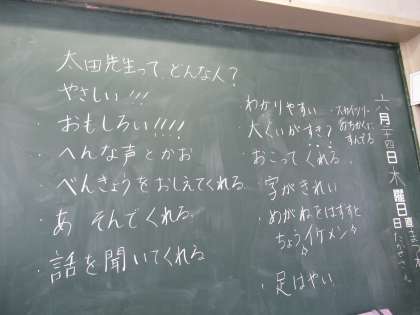 太田先生って、どんな人？
やさしい!!!
・おもしろい!!!!
・へんな声とかお
・べんきょうをおしえてくれる
・あそんでくれる
・話を聞いてくれる
わかりやすい
大くいがすき？
・おこってくれる
・字がきれい
・めがねをはずすと
ちょうイケメン
・足はやい
スカイツリー
のちかくに
すんでる
六月二十四日木曜日
日直